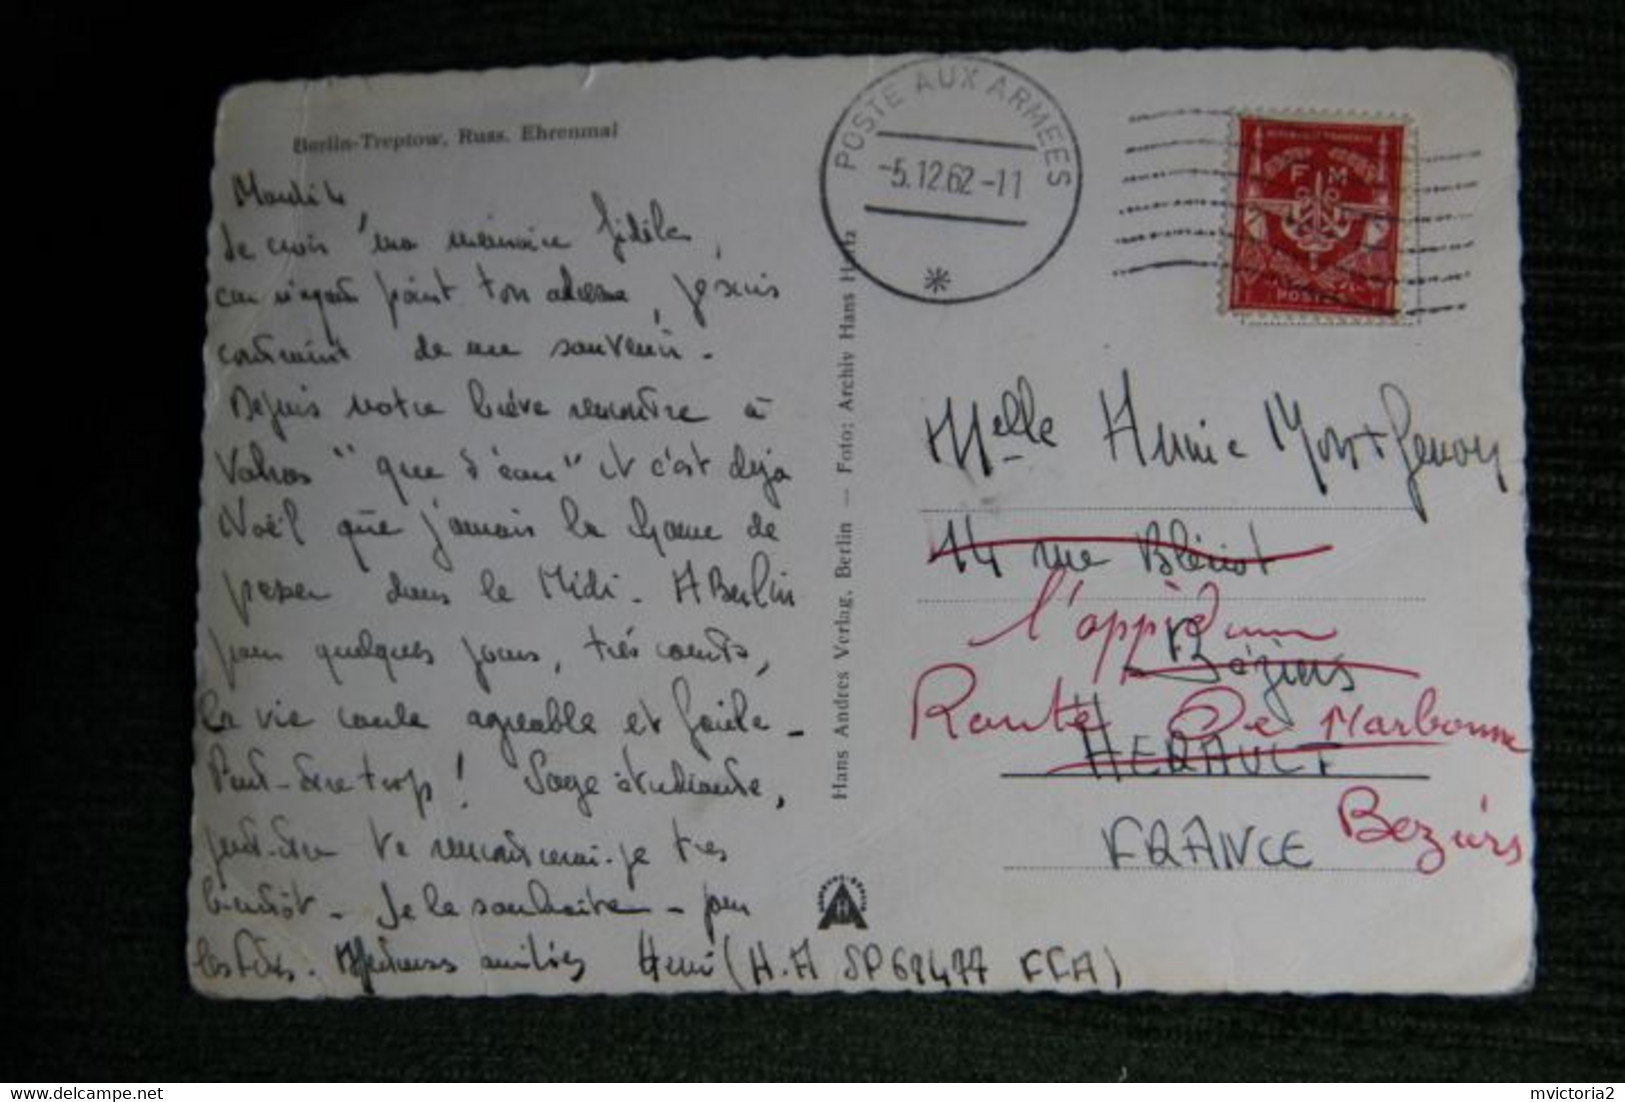 Berlin-Treptow, Russ. Ehrenmal
Mardi 4
Je crois ma mémoire fidèle,
car n'ayant point ton adresse, je suis
contraint de me souvenir.
Depuis notre brève rencontre à
Valras "que d'eau" et c'est déjà
Noël que j'amais la chance de
passer dans le Midi. A Berlin
pour quelques jours, très courts,
la vie coule agréable et facile.
Peut-être trop ! Sage étudiante,
peut-être te rencontrerai-je très
bientôt. Je le souhaite. pour
les fêtes. Affectueuses amitiés Henri (H.A SP 69477 FFA)
Hans Andres Verlag, Berlin — Foto: Archiv Hans Hartz
POSTE AUX ARMEES
-5.12.62-11
REPUBLIQUE FRANÇAISE
F M
POSTES
Melle Annie Montgenoy
14 rue Blériot
l'oppidum
Béziers
Route de Narbonne
HERAULT
FRANCE
Beziers
mvictoria2